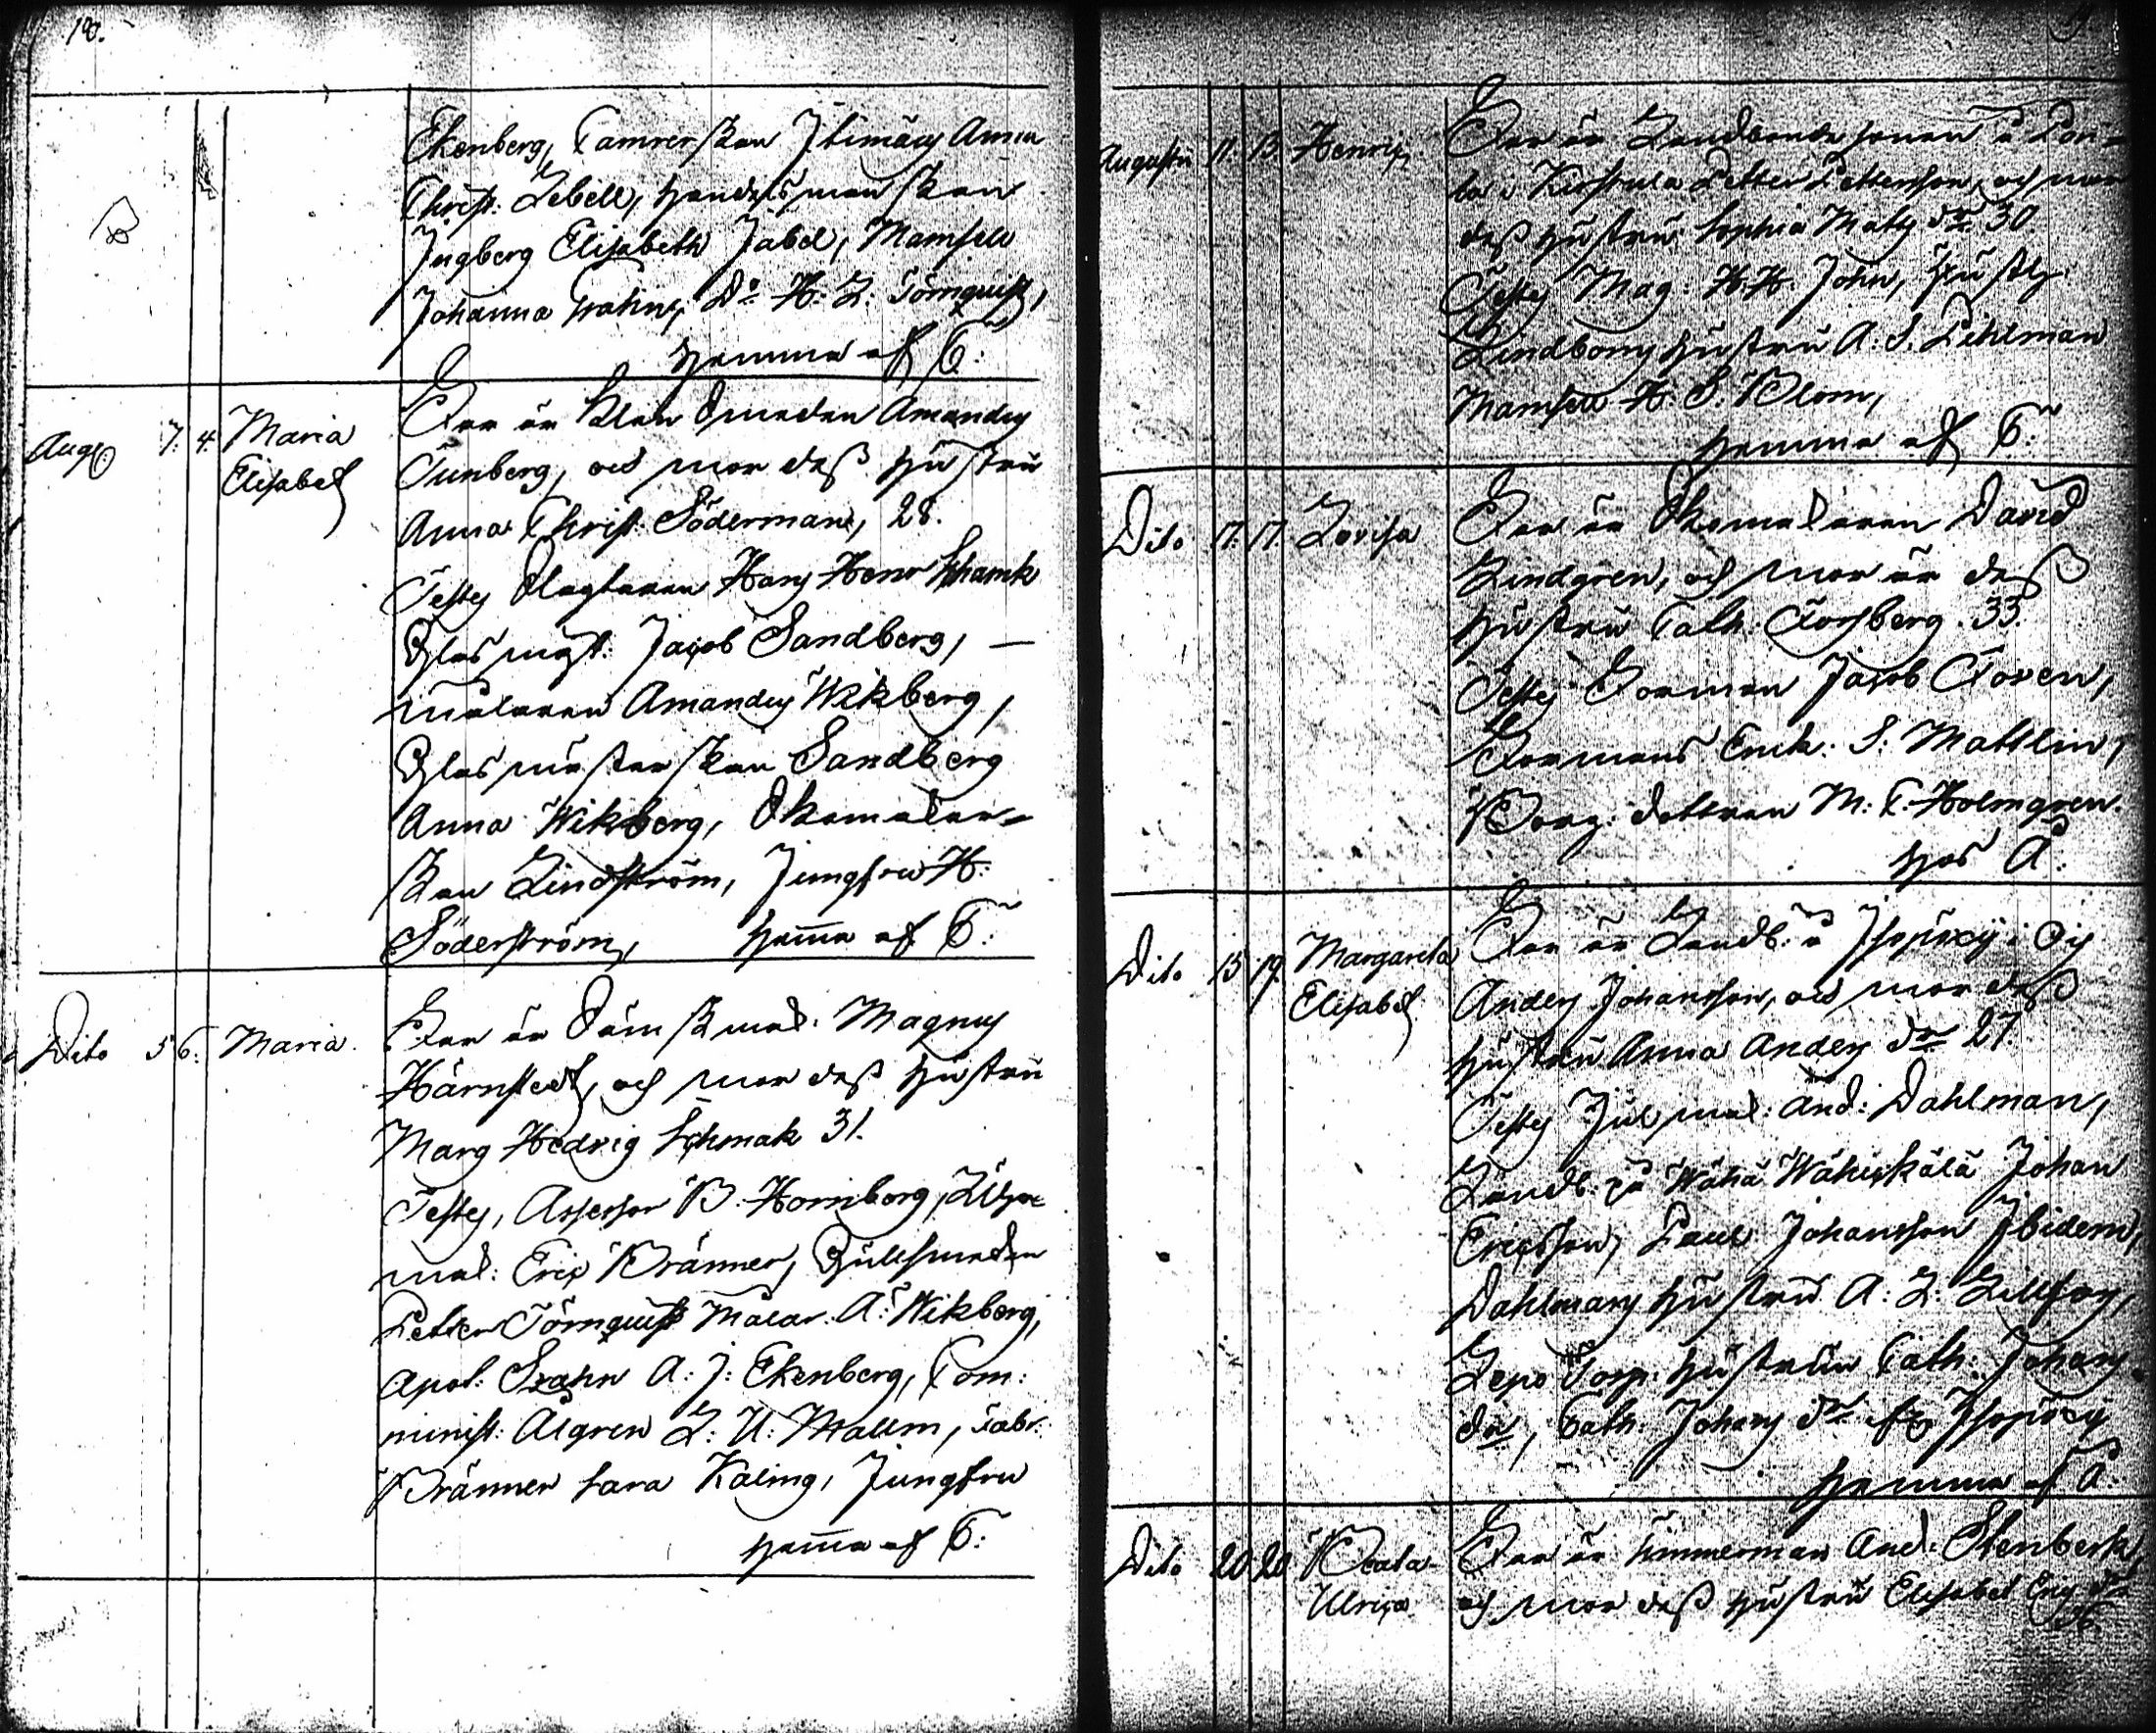 18.
Ekenberg, Camrerskan Itimæus Anna
Christ: Zebell, handelsmanskan
Ingberg Elisabeth Zabel, Mamsell
Johanna Grahn, D:o H: L: Törnquist,
hemma af C:
Aug. 7. 4. Maria Elisabet
Far är Klen Smeden Amandus
Tunberg, och mor dess hustru
Anna Christ: Söderman, 28.
Testes Slagtaren Hans Henr Schamk
Glasmäst: Jacob Sandberg, —
målaren Amandus Wikberg,
Glasmästerskan Sandberg
Anna Wikberg, Skomakar-
skan Lindström, Jungfru H:
Söderström, hemma af C:
Dito 5 6. Maria.
Far är Mag­nus
Härnstedt, och mor dess hustru
Marg Hedvig Schmak 31.
Testes, Assessor B. Hornborg,
mak: Eric Bränner, Gullsmeden
Petter Törnquist Målar. A: Wikberg,
Apot: Grahn A: J: Ekenberg, Com:
minist: Algren L: U: Mallm, Fabr:
Bränner Sara Kaling, Jungfru
hemma af C:
19
Augusti 11. 13. Henric
Far är Landbondesonen å
i Petter Pettersson, och mor
dess hustru Sophia Mats d:r 30.
Testes Mag: H. H. John,
Lindboms hustru A: S. Pihlman
Mamsell H. S: Blom,
hemma af C:
Dito 17. 17. Lovisa
Far är Skomakaren David
Lindgren, och mor är dess
hustru Cath: Forsberg. 33.
Testes Forman Jacob Foren,
Formans Enk: S: Mattlin,
Borg: dottren M: C. Holmgren.
hos A:
Dito 13 19. Margareta Elisabet
Far är Landb: å Isopöxy i
Anders Johansson, och mor dess
hustru Anna Anders d:r 27.
Testes And: Dahlman,
Landb: på Wähä Wähiskälä Johan
Ericsson, Paul Johansson Ibidem,
Dahlmans hustru A: L: Lillfors,
Lepo Torp: hustrun Cath: Johans
d:r, Cath: Johans d:r fr Isopöxy
hemma af A:
Dito 20. 20 Beata Ulrica
Far är Timmerman And: Stenberk
och mor dess hustru Elisabet Erics d:r
36.